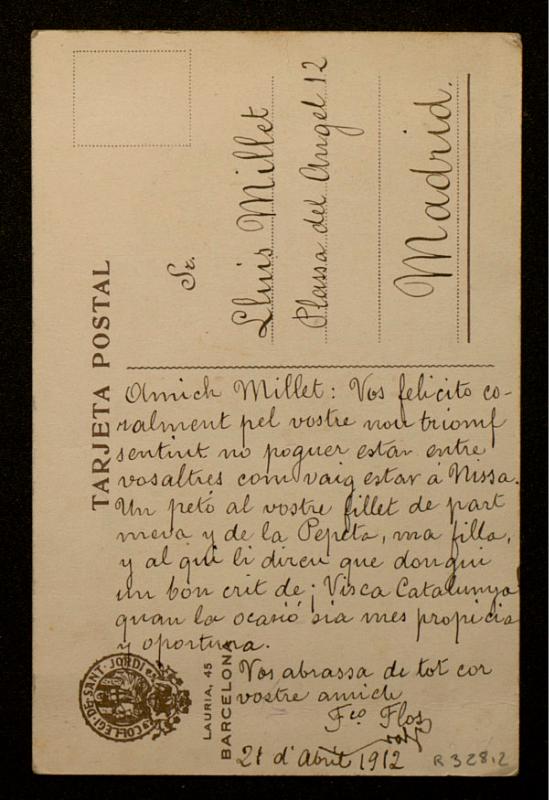 TARJETA POSTAL
Sr.
Lluis Millet
Plassa del Angel 12
Madrid.
Amich Millet: Vos felicito co-
ralment pel vostre nou triomf
sentint no poguer estar entre
vosaltres com vaig estar á Nissa.
Un petó al vostre fillet de part
meva y de la Pepeta, ma filla,
y al qui li direu que dongui
un bon crit de ¡Visca Catalunya
quan la ocasió sia mes propicia
y oportuna.
Vos abrassa de tot cor
vostre amich
Fco Flos
21 d'Abril 1912
COLLEGI·DE·SANT·JORDI
LAURIA, 45
BARCELONA
R 328.2